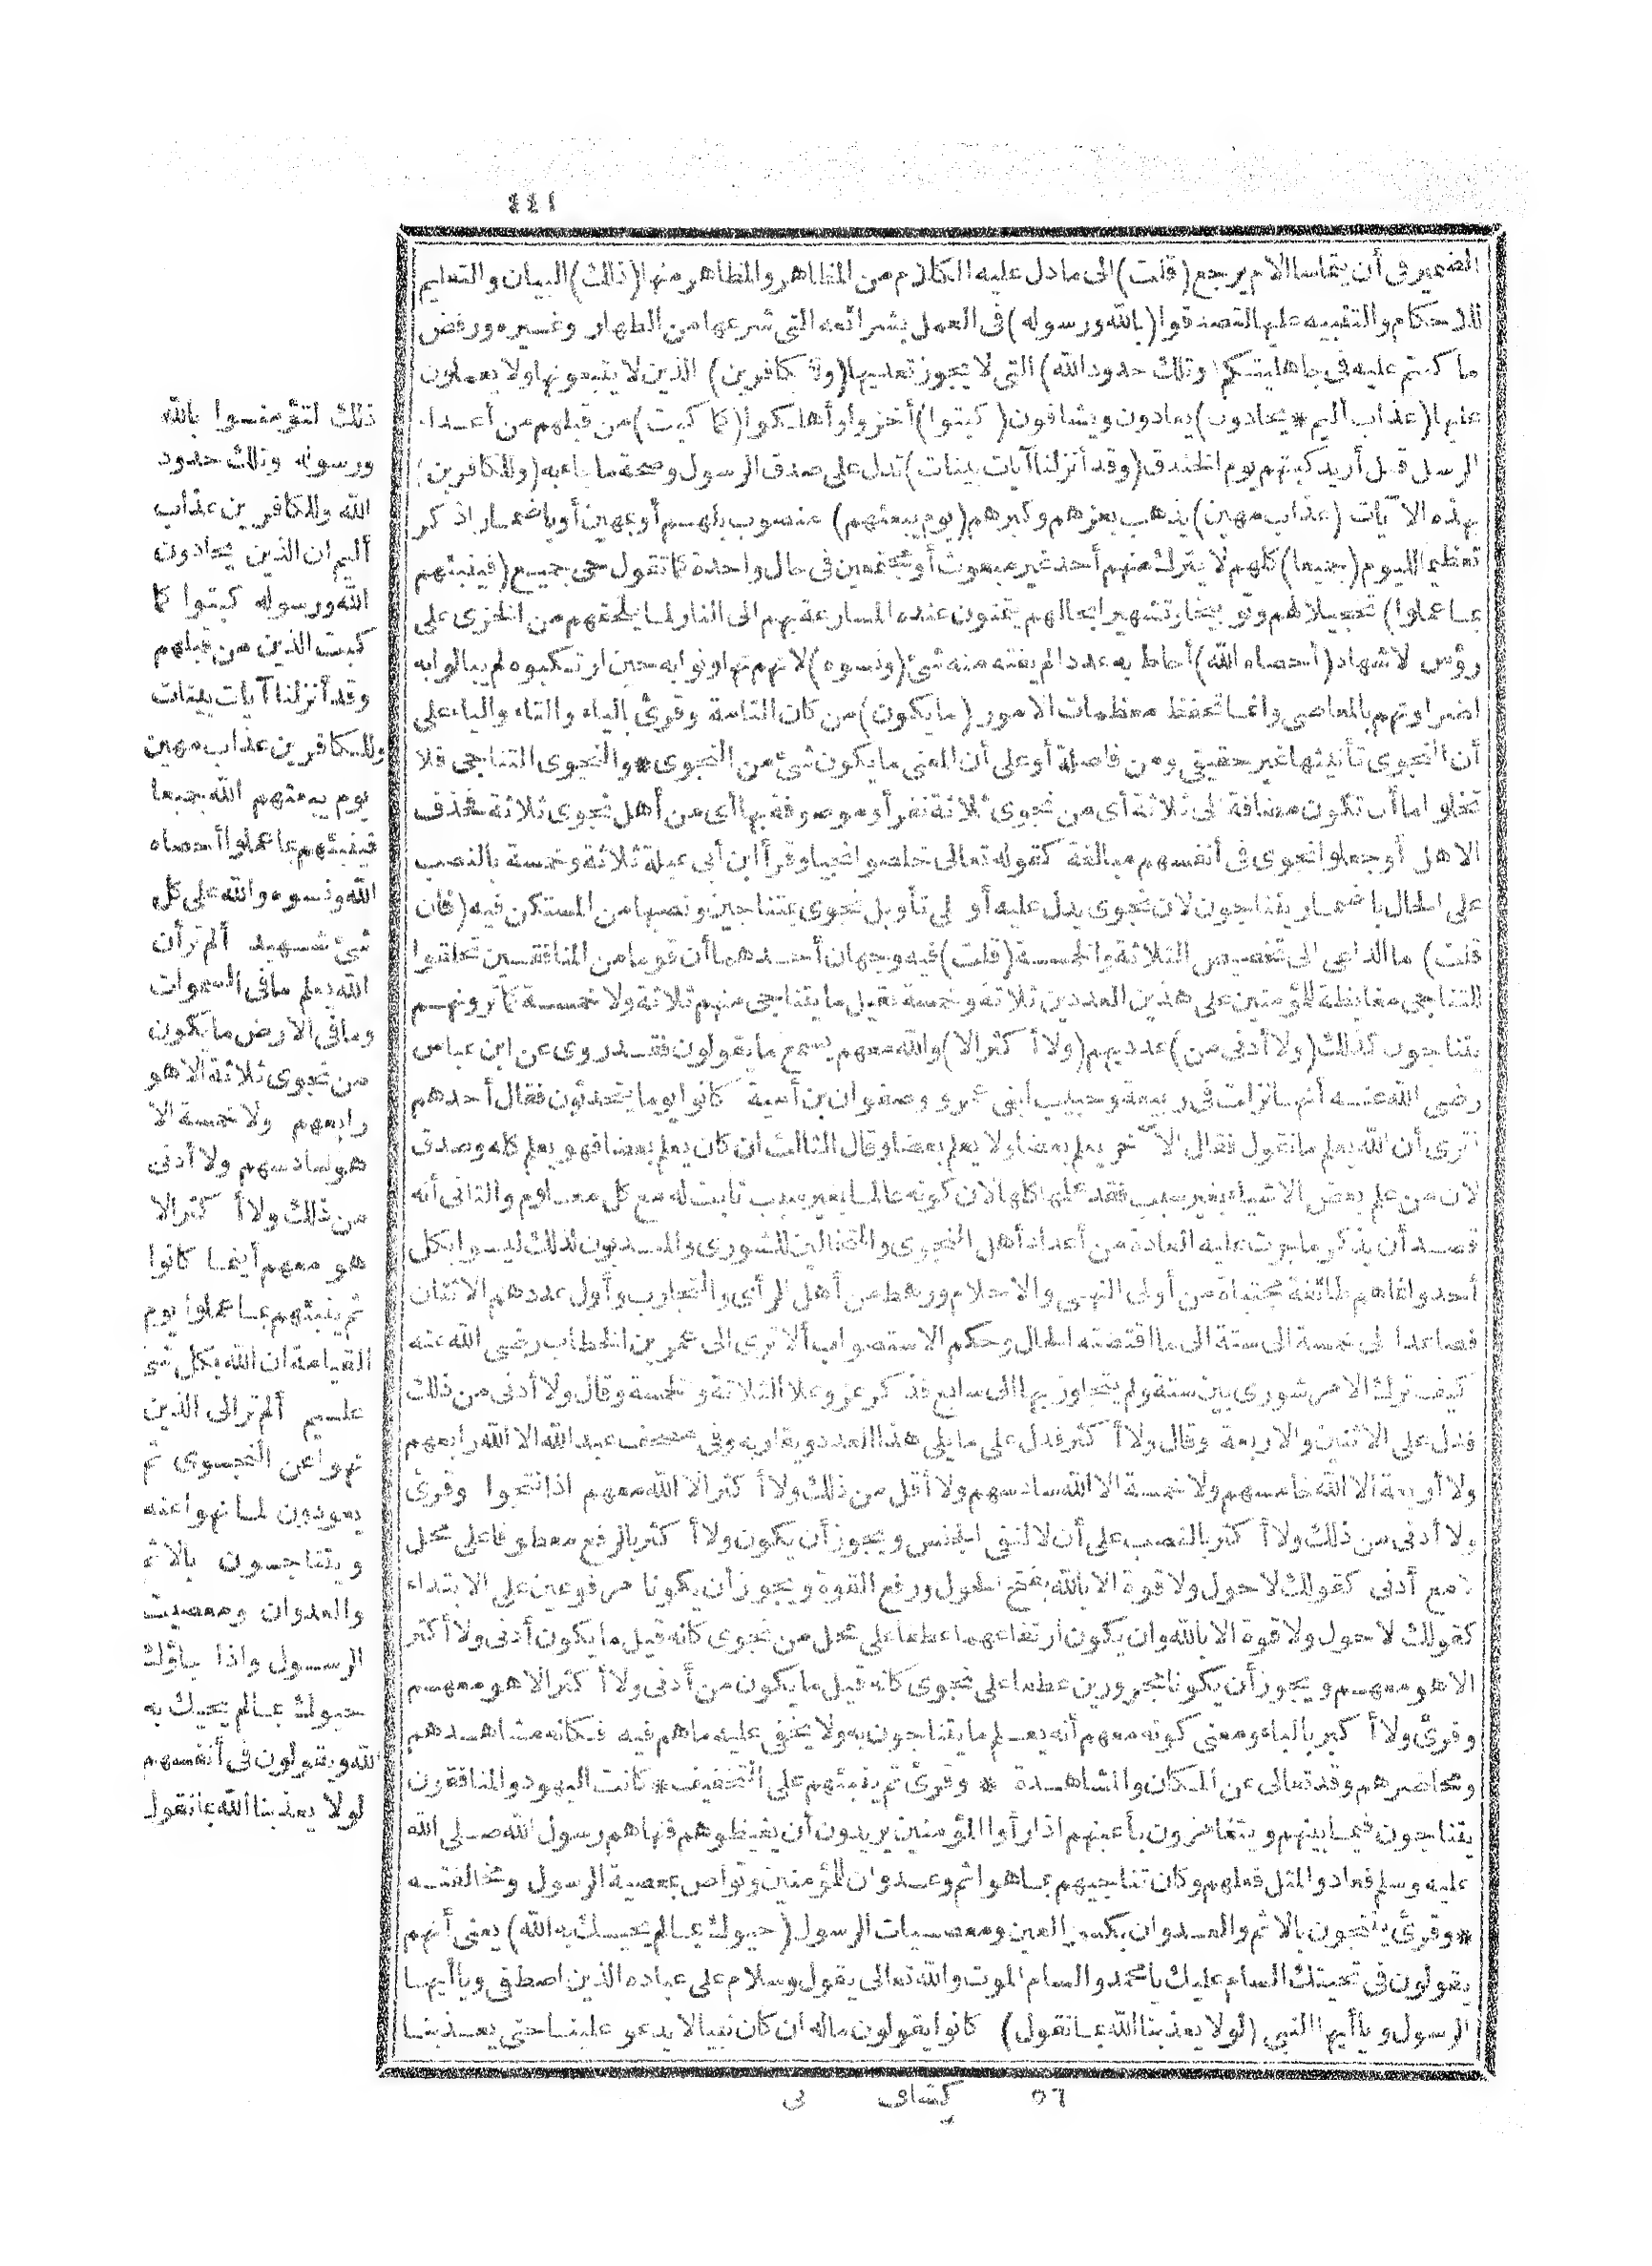 ٤٤١
الضمير في أن يتماسا الام يرجع (قلت) الى ما دل عليه الكلام من المظاهر والمظاهر منها (ذلك) البيان والتعليم
للاحكام والتنبيه عليها لتصدقوا (بالله ورسوله) في العمل بشرائعه التى شرعها من الظهار وغيره ورفض
ما كنتم عليه في جاهليتكم (وتلك حدود الله) التى لا يجوز تعديها (ولل كافرين) الذين لا يتبعونها ولا يعملون
عليها (عذاب أليم * يحادون) يعادون ويشاقون (كبتوا) أخزوا وأهلكوا (كما كبت) من قبلهم من أعداء
الرسل قيل أريد كبتهم يوم الخندق (وقد أنزلنا آيات بينات) تدل على صدق الرسول وصحة ما جاء به (وللكافرين)
بهذه الآيات (عذاب مهين) يذهب بعزهم وكبرهم (يوم يبعثهم) منصوب بلهم أو بمهين أو باضمار اذكر
تعظيما لليوم (جميعا) كلهم لا يترك منهم أحد غير مبعوث أو مجتمعين في حال واحدة كما تقول حى جميع (فينبئهم
بما عملوا) تخجيلا لهم وتوبيخا وتشهيرا بحالهم يتمنون عنده المسارعة بهم الى النار لما يلحقهم من الخزى على
رؤس الاشهاد (أحصاه الله) أحاط به عددا لم يفته منه شئ (ونسوه) لانهم تهاونوا به حين ارتكبوه لم يبالوا به
لضراوتهم بالمعاصى وانما تحفظ معظمات الامور (ما يكون) من كان التامة وقرئ بالياء والتاء والياء على
أن النجوى تأنيثها غير حقيقى ومن فاصلة أو على أن المعنى ما يكون شئ من النجوى * والنجوى التناجى فلا
تخلو اما أن تكون مضافة الى ثلاثة أى من نجوى ثلاثة نفر أو موصوفة بها أى من أهل نجوى ثلاثة فحذف
الاهل أو جعلوا نجوى في أنفسهم مبالغة كقوله تعالى خلصوا نجيا وقرأ ابن أبى عبلة ثلاثة وخمسة بالنصب
على الحال باضمار يتناجون لان نجوى يدل عليه أو على تأويل نجوى بمتناجين ونصبها من المستكن فيه (فان
قلت) ما الداعى الى تخصيص الثلاثة والخمسة (قلت) فيه وجهان أحدهما أن قوما من المنافقين تحلقوا
للتناجى مغايظة للمؤمنين على هذين العددين ثلاثة وخمسة فقيل ما يتناجى منهم ثلاثة ولا خمسة كما ترونهم
يتناجون كذلك (ولا أدنى من) عدديهم (ولا أكثر الا) والله معهم يسمع ما يقولون فقد روى عن ابن عباس
رضى الله عنه أنها نزلت في ربيعة وحبيب ابنى عمرو وصفوان بن أمية كانوا يوما يتحدثون فقال أحدهم
أترى أن الله يعلم ما نقول فقال الآخر يعلم بعضا ولا يعلم بعضا وقال الثالث ان كان يعلم بعضا فهو يعلم كله وصدق
لان من علم بعض الاشياء بغير سبب فقد علمها كلها لان كونه عالما بغير سبب ثابت له مع كل معلوم والثانى أنه
قصد أن يذكر ما جرت عليه العادة من أعداد أهل النجوى والمتخالين للشورى والمندبون لذلك ليسوا بكل
أحد وانما هم طائفة مجتباة من أولى النهى والاحلام ورهط من أهل الرأى والتجارب وأول عددهم الاثنان
فصاعدا الى خمسة الى ستة الى ما اقتضته الحال وحكم الاستصواب ألا ترى الى عمر بن الخطاب رضى الله عنه
كيف ترك الامر شورى بين ستة ولم يتجاوز بها الى سابع فذكر عز وعلا الثلاثة والخمسة وقال ولا أدنى من ذلك
فدل على الاثنين والاربعة وقال ولا أكثر فدل على ما يلى هذا العدد ويقاربه وفى مصحف عبد الله الا الله رابعهم
ولا أربعة الا الله خامسهم ولا خمسة الا الله سادسهم ولا أقل من ذلك ولا أكثر الا الله معهم اذا انتجوا وقرئ
ولا أدنى من ذلك ولا أكثر بالنصب على أن لا لنفى الجنس ويجوز أن يكون ولا أكثر بالرفع معطوفا على محل
لا مع أدنى كقولك لا حول ولا قوة الا بالله بفتح الحول ورفع القوة ويجوز أن يكونا مرفوعين على الابتداء
كقولك لا حول ولا قوة الا بالله وان يكون ارتفاعهما عطفا على محل من نجوى كانه قيل ما يكون أدنى ولا أكثر
الا هو معهم ويجوز أن يكونا مجرورين عطفا على نجوى كانه قيل ما يكون من أدنى ولا أكثر الا هو معهم
وقرئ ولا أكبر بالباء ومعنى كونه معهم أنه يعلم ما يتناجون به ولا يخفى عليه ما هم فيه فكانه مشاهدهم
ومحاضرهم وقد تعالى عن المكان والمشاهدة * وقرئ ثم ينبئهم على التخفيف * كانت اليهود والمنافقون
يتناجون فيما بينهم ويتغامزون بأعينهم اذا رأوا المؤمنين يريدون أن يغيظوهم فنهاهم رسول الله صلى الله
عليه وسلم فعادوا لمثل فعلهم وكان تناجيهم بما هو اثم وعدوان للمؤمنين وتواص بمعصية الرسول ومخالفته
* وقرئ ينتجون بالاثم والعدوان بكسر العين ومعصيات الرسول (حيوك بما لم يحيك به الله) يعنى أنهم
يقولون في تحيتك السام عليك يا محمد والسام الموت والله تعالى يقول وسلام على عباده الذين اصطفى ويا أيها
الرسول ويا أيها النبى (لولا يعذبنا الله بما نقول) كانوا يقولون ماله ان كان نبيا لا يدعو علينا حتى يعذبنا
ذلك لتؤمنوا بالله
ورسوله وتلك حدود
الله وللكافرين عذاب
أليم ان الذين يحادون
الله ورسوله كبتوا كما
كبت الذين من قبلهم
وقد أنزلنا آيات بينات
وللكافرين عذاب مهين
يوم يبعثهم الله جميعا
فينبئهم بما عملوا أحصاه
الله ونسوه والله على كل
شئ شهيد ألم تر أن
الله يعلم ما فى السموات
وما فى الارض ما يكون
من نجوى ثلاثة الا هو
رابعهم ولا خمسة الا
هو سادسهم ولا أدنى
من ذلك ولا أكثر الا
هو معهم أينما كانوا
ثم ينبئهم بما عملوا يوم
القيامة ان الله بكل شئ
عليم ألم تر الى الذين
نهوا عن النجوى ثم
يعودون لما نهوا عنه
ويتناجون بالاثم
والعدوان ومعصيت
الرسول واذا جاؤك
حيوك بما لم يحيك به
الله ويقولون فى أنفسهم
لولا يعذبنا الله بما نقول
٥٦ كشاف نى